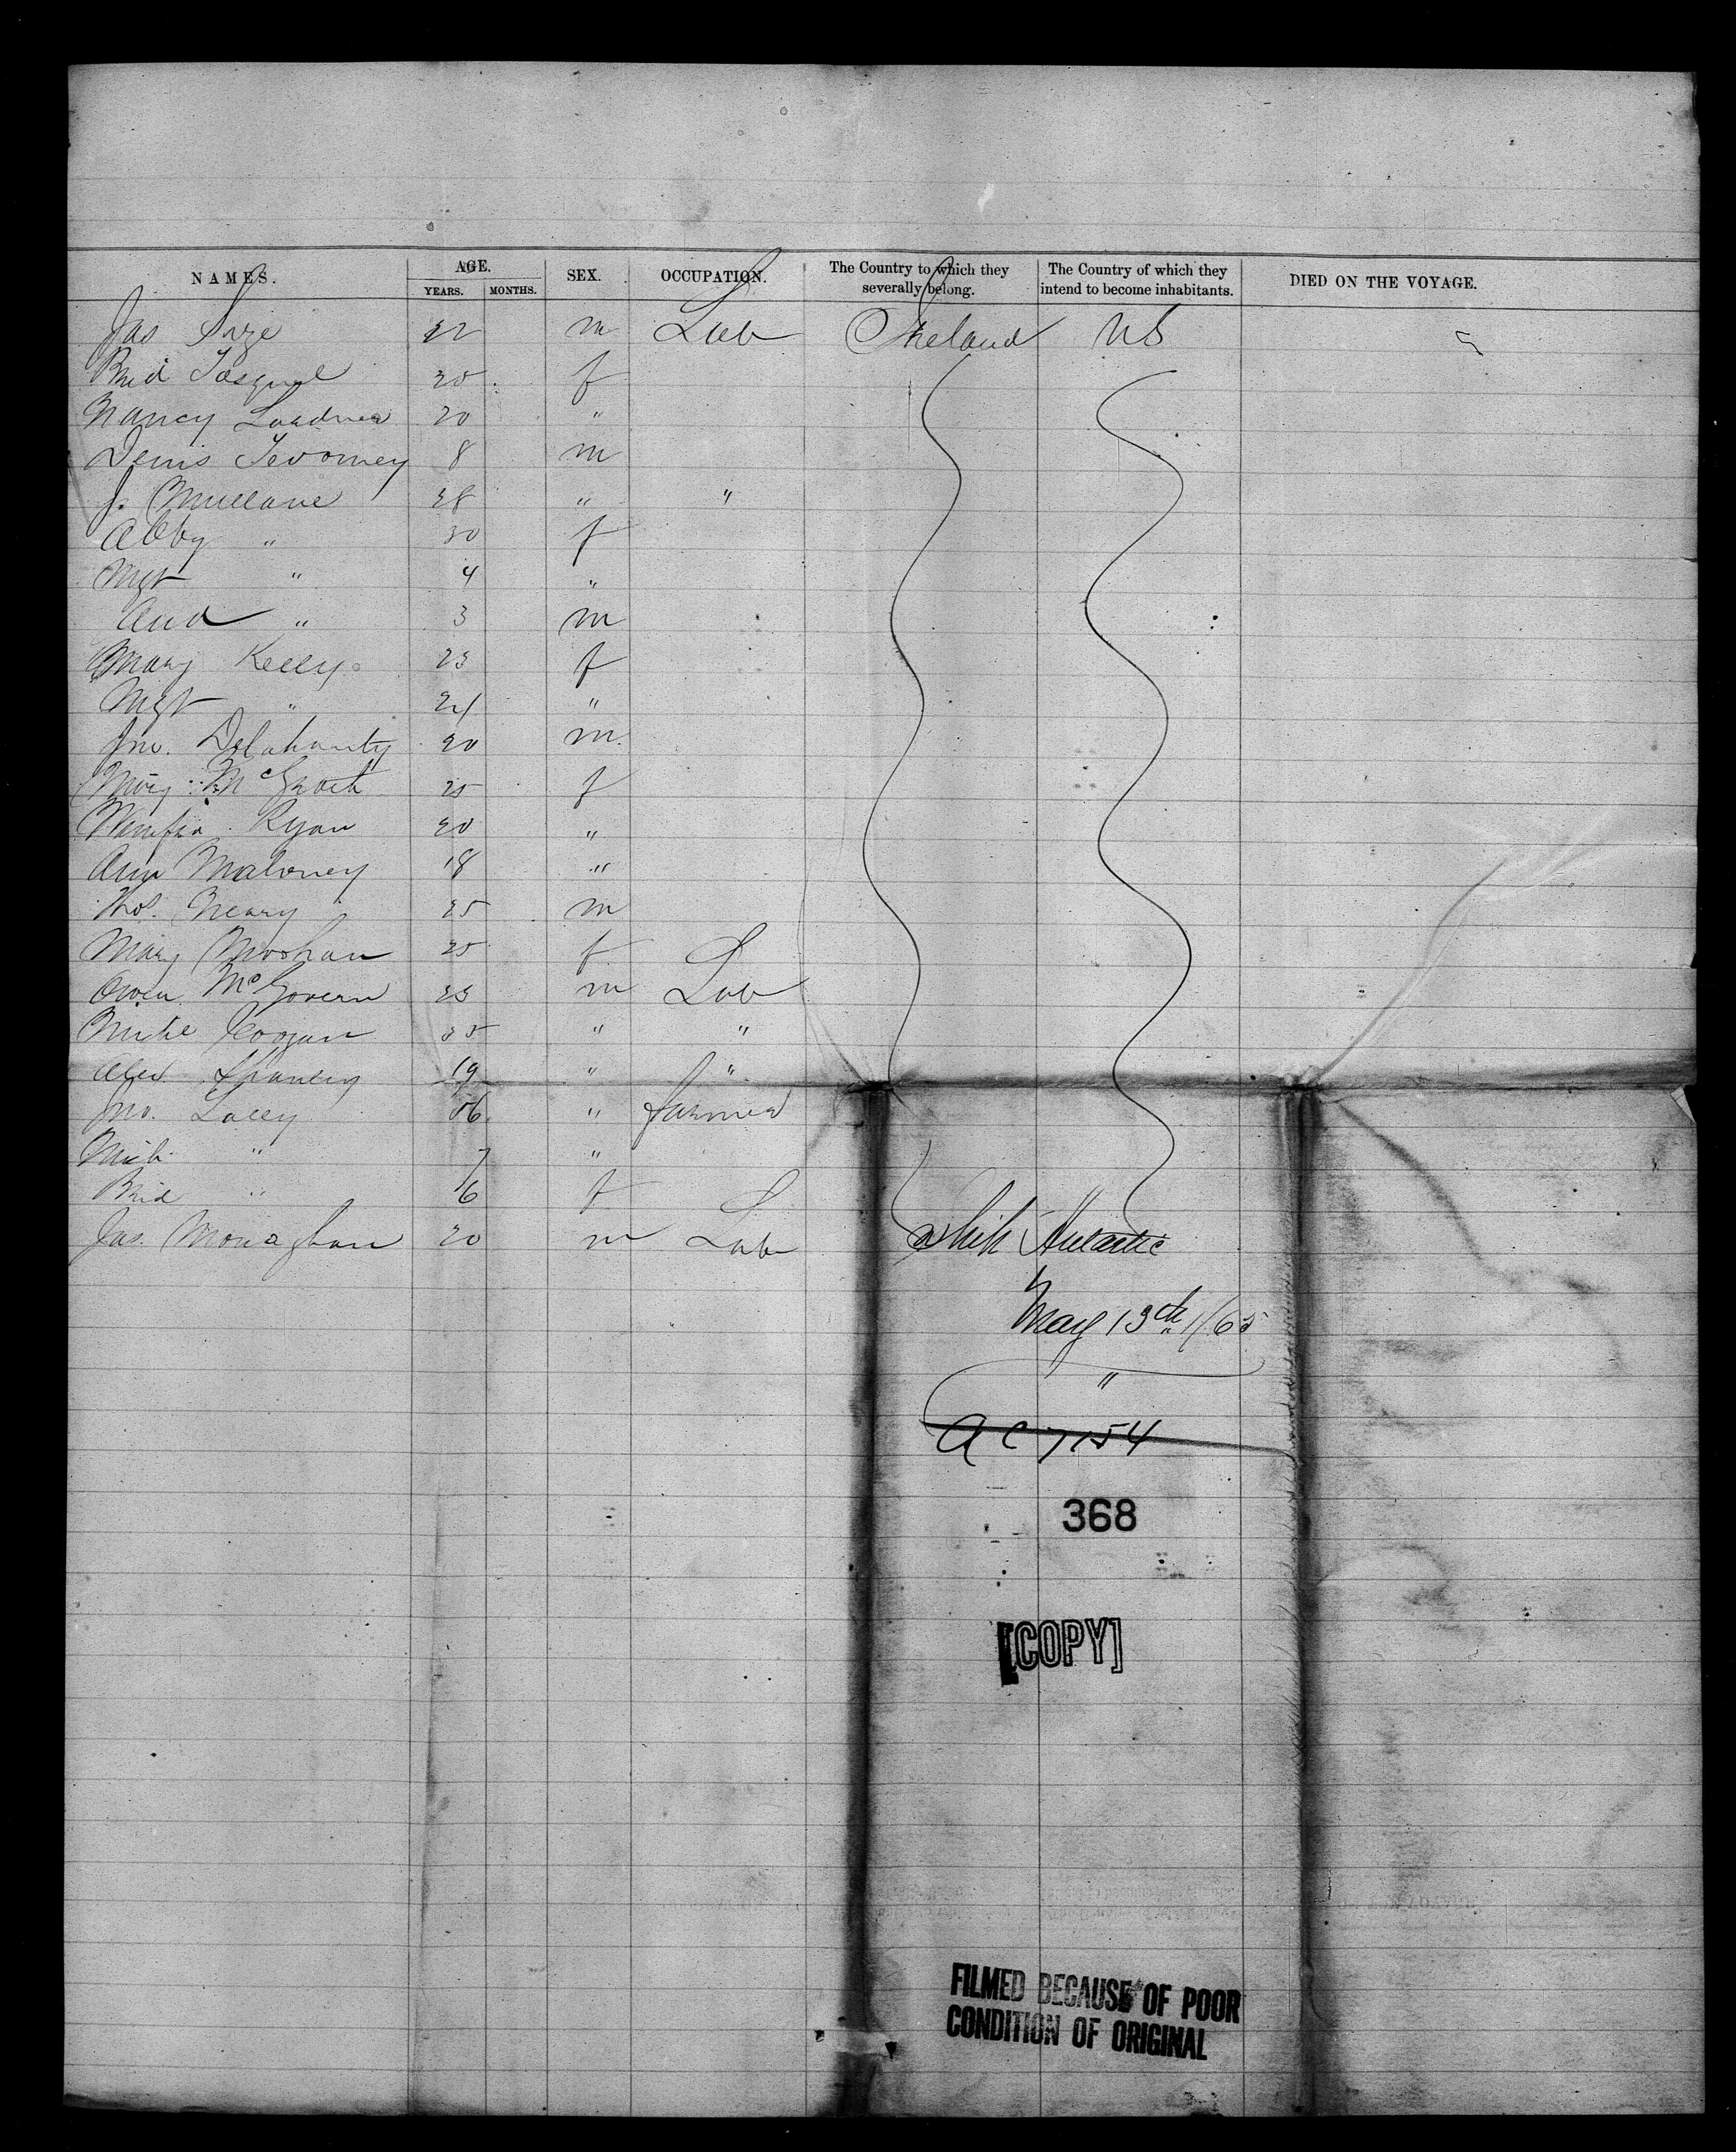 NAMES. AGE. YEARS. MONTHS. SEX. OCCUPATION. The Country to which they severally belong. The Country of which they intend to become inhabitants. DIED ON THE VOYAGE.
Jas 22 m Lab Ireland US
Brid 20 f
Nancy 20 "
Denis 8 m
J. Mullane 28 " "
Abby " 30 f
Mgt " 4 "
And " 3 m
Mary Kelly 23 f
Mgt " 21 "
Jno. Delahanty 20 m
Mary McGrath 25 f
Ryan 20 "
Ann Maloney 18 "
Thos. Neary 25 m
Mary 25 f
Owen McGovern 23 m Lab
Mike 35 " "
Alex. 19 " "
Jno. Lacey 56 " farmer
Mich. " 7 "
Brid " 6 f
Jas. Monaghan 20 m Lab
Ship Antartic
May 13th /65
"
A C 7154
368
[COPY]
FILMED BECAUSE OF POOR
CONDITION OF ORIGINAL